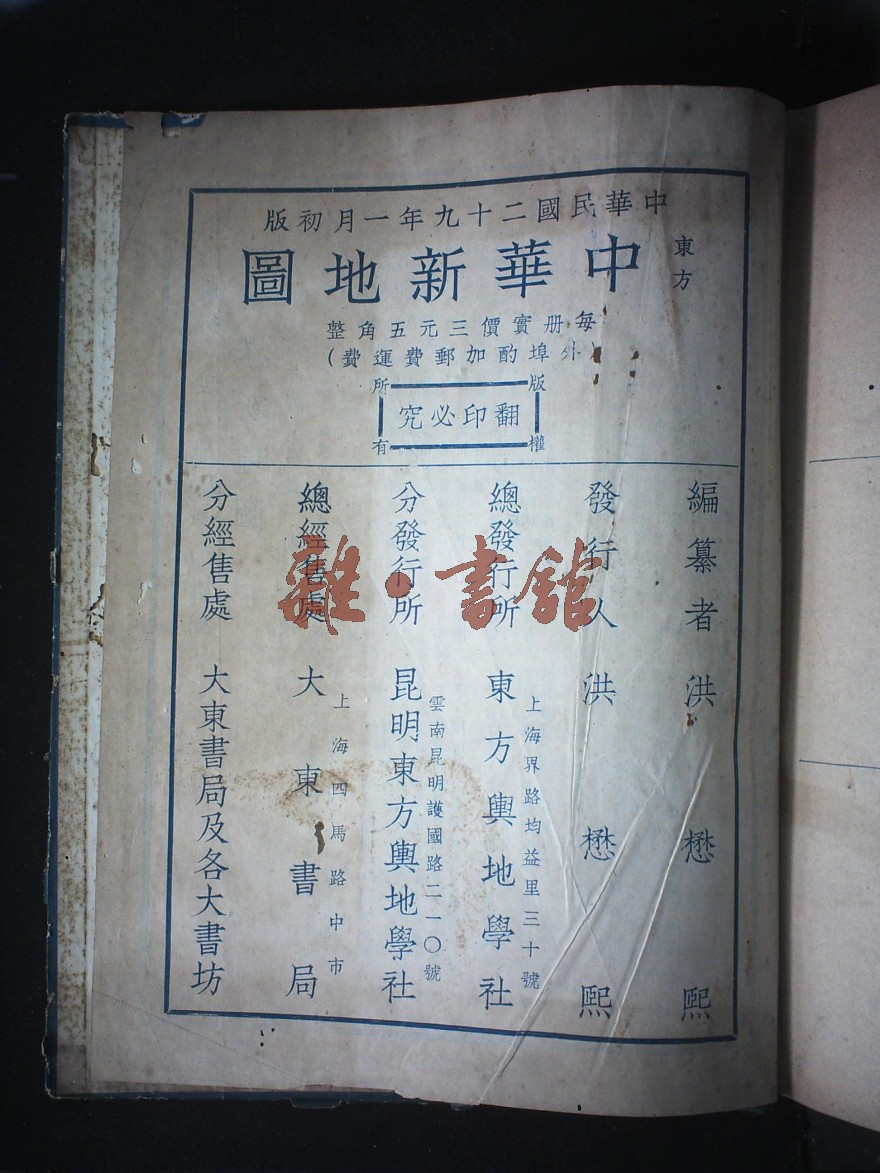 中華民國二十九年一月初版
東方
中華新地圖
每册實價三元五角整
(外埠酌加郵費運費)
版權所有
翻印必究
編纂者 洪懋熙
發行人 洪懋熙
總發行所 東方輿地學社
上海界路均益里三十號
分發行所 昆明東方輿地學社
雲南昆明護國路二一〇號
總經售處 大東書局
上海四馬路中市
分經售處 大東書局及各大書坊
雜·書館